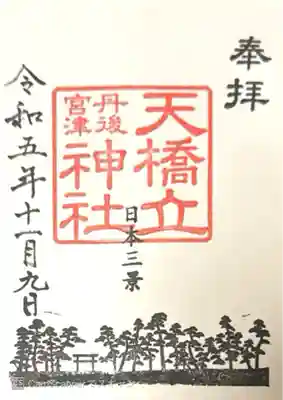 奉拝
天橋立
丹後
宮津
神社
日本三景
令和五年十一月九日